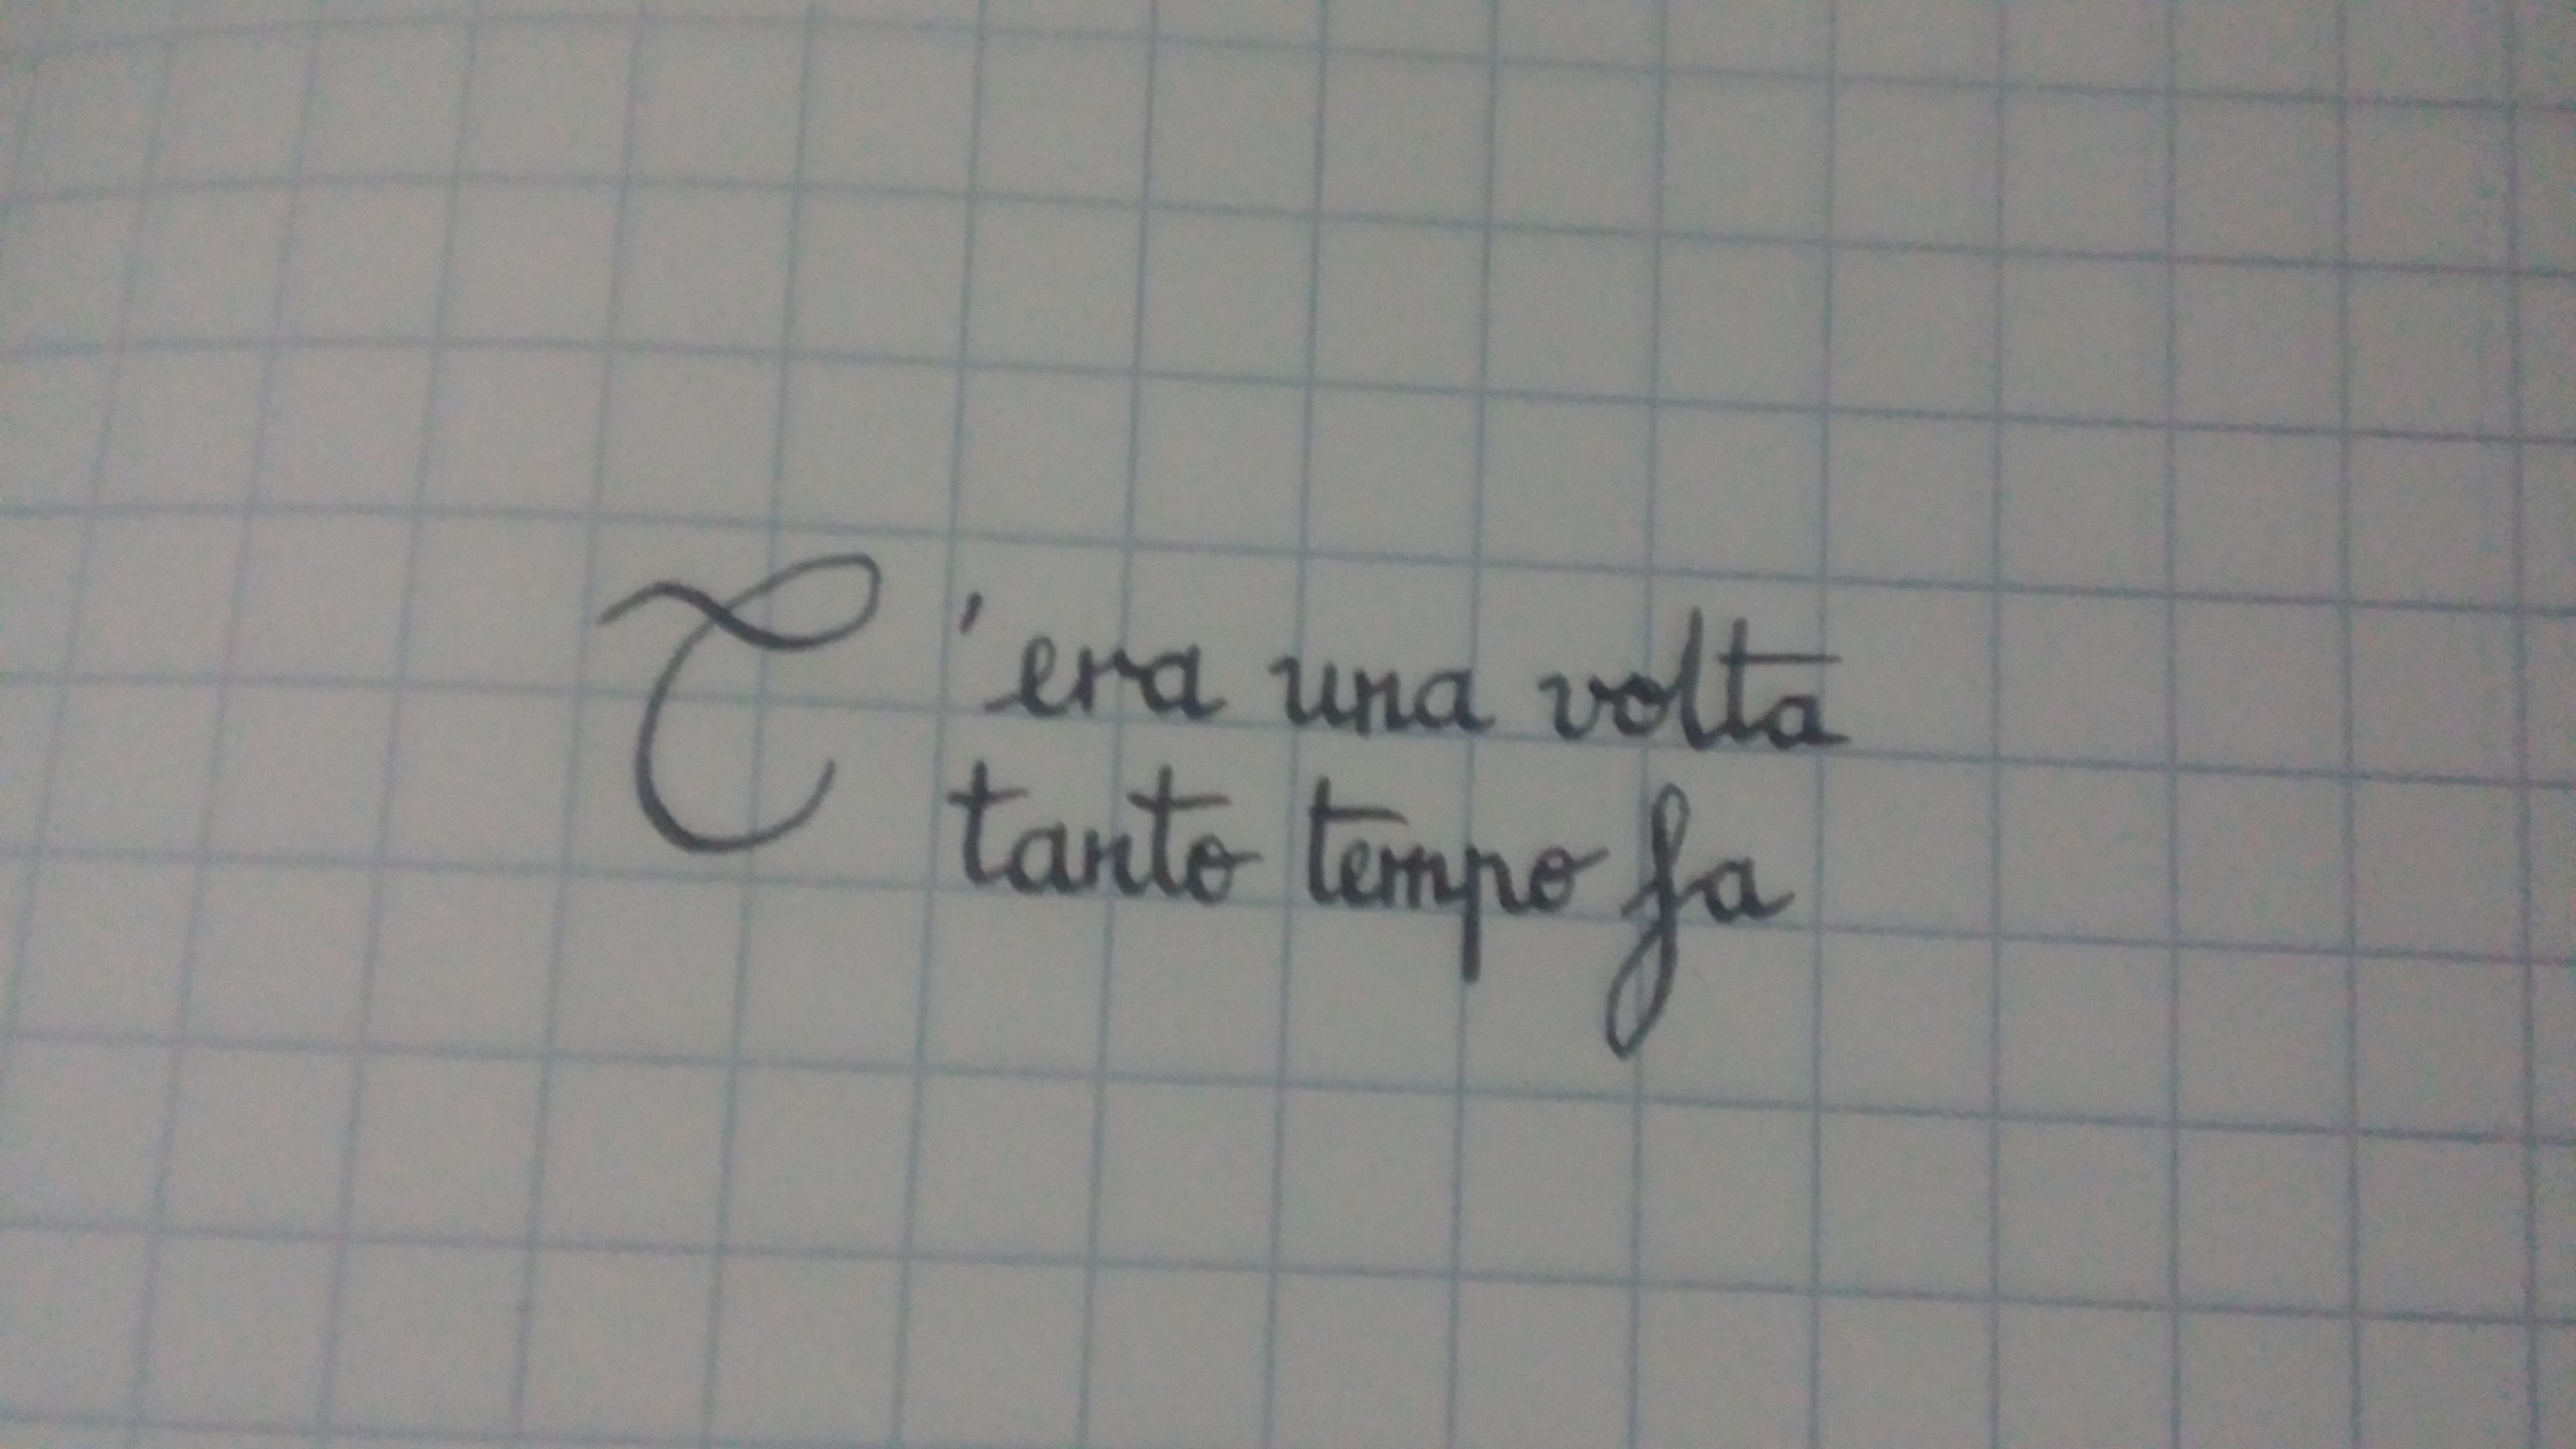 C'era una volta
tanto tempo fa